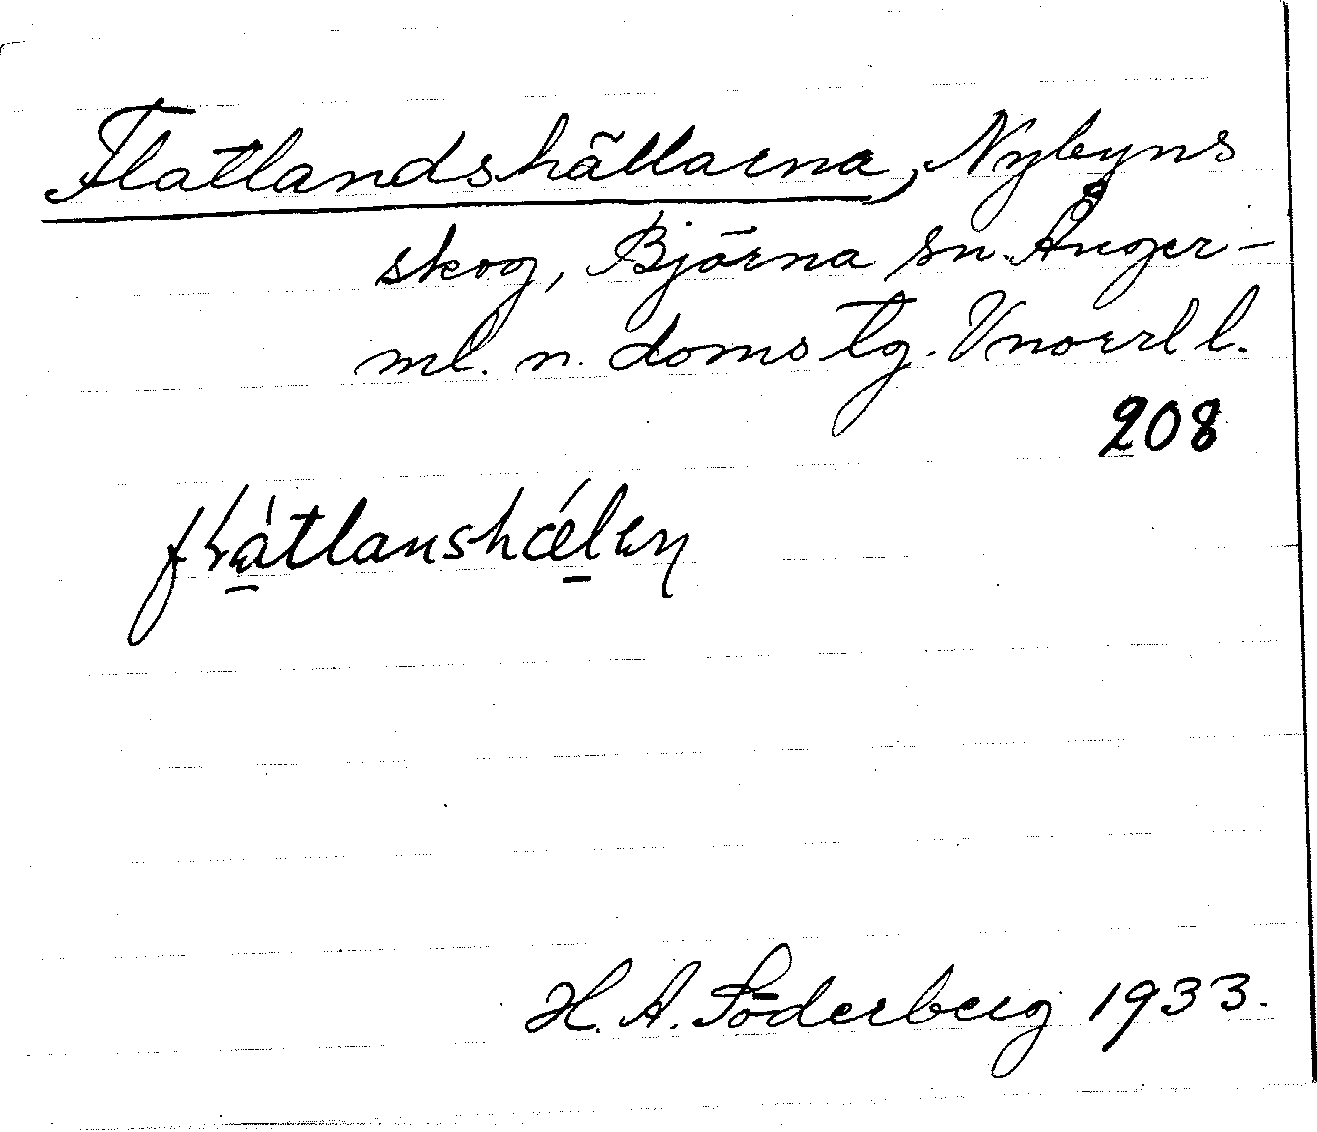 Flatlandshällarna, Nybyns
skog, Björna sn. Ånger-
ml. n. doms tg. Vnorrl l.
208
H. A. Söderberg 1933.